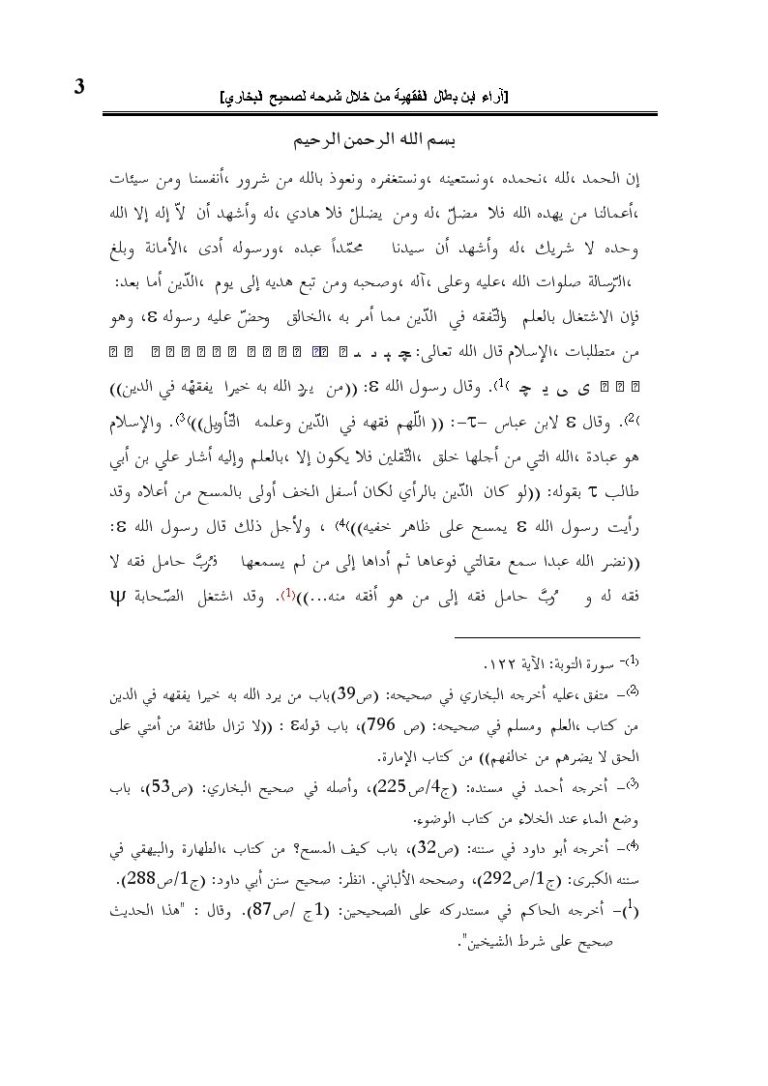 3
[آراء ابن بطال الفقهية من خلال شرحه لصحيح البخاري]
بسم الله الرحمن الرحيم
إن الحمد ،لله ،نحمده ،ونستعينه ،ونستغفره ونعوذ بالله من شرور ،أنفسنا ومن سيئات
،أعمالنا من يهده الله فلا مضلّ ،له ومن يضللْ فلا هادي ،له وأشهد أن لاّ إله إلا الله
وحده لا شريك ،له وأشهد أن سيدنا محمّداً عبده ،ورسوله أدى ،الأمانة وبلغ
،الرّسالة صلوات الله ،عليه وعلى ،آله ،وصحبه ومن تبع هديه إلى يوم ،الدّين أما بعد:
فإن الاشتغال بالعلم والتّفقه في الدّين مما أمر به ،الخالق وحضّ عليه رسوله ε، وهو
من متطلبات ،الإسلام قال الله تعالى: چ
ی ی ي چ (1). وقال رسول الله ε: ((من يرد الله به خيرا يفقهْه في الدين))
(2). وقال ε لابن عباس –τ–: (( اللّهم فقهه في الدّين وعلمه التّأويل))(3). والإسلام
هو عبادة ،الله التي من أجلها خلق ،الثّقلين فلا يكون إلا ،بالعلم وإليه أشار علي بن أبي
طالب τ بقوله: ((لو كان الدّين بالرأي لكان أسفل الخف أولى بالمسح من أعلاه وقد
رأيت رسول الله ε يمسح على ظاهر خفيه))(4) ، ولأجل ذلك قال رسول الله ε:
((نضر الله عبدا سمع مقالتي فوعاها ثم أداها إلى من لم يسمعها فرُبَّ حامل فقه لا
فقه له و رُبَّ حامل فقه إلى من هو أفقه منه...))(1). وقد اشتغل الصّحابة ψ
(1)- سورة التوبة: الآية ١٢٢.
(2)– متفق ،عليه أخرجه البخاري في صحيحه: (ص39)باب من يرد الله به خيرا يفقهه في الدين
من كتاب ،العلم ومسلم في صحيحه: (ص 796)، باب قولهε : ((لا تزال طائفة من أمتي على
الحق لا يضرهم من خالفهم)) من كتاب الإمارة.
(3)– أخرجه أحمد في مسنده: (ج4/ص225)، وأصله في صحيح البخاري: (ص53)، باب
وضع الماء عند الخلاء من كتاب الوضوء.
(4)– أخرجه أبو داود في سننه: (ص32)، باب كيف المسح؟ من كتاب ،الطهارة والبيهقي في
سننه الكبرى: (ج1/ص292)، وصححه الألباني. انظر: صحيح سنن أبي داود: (ج1/ص288).
(1)– أخرجه الحاكم في مستدركه على الصحيحين: (ج1 /ص87). وقال : "هذا الحديث
صحيح على شرط الشيخين".